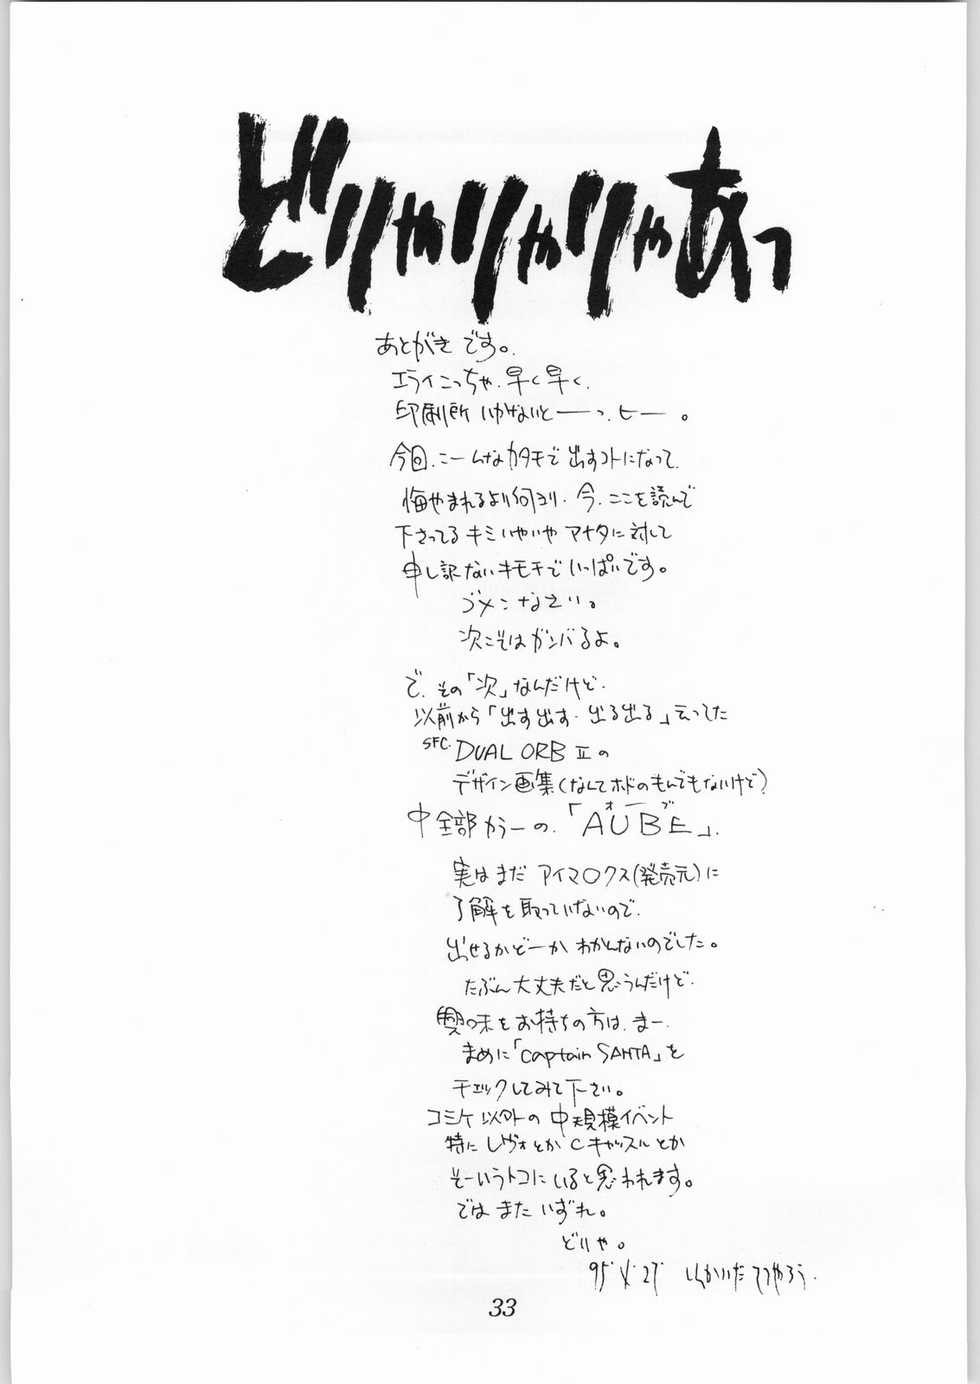 どりゃりゃりゃあっ
あとがきです。
エライこっちゃ、早く早く、
印刷所いかないとーーっ、ヒー。
今回、こーんなカタチで出すコトになって、
悔やまれるより何より、今、ここを読んで
下さってるキミいやいやアナタに対して
申し訳ないキモチでいっぱいです。
ゴメンなさい。
次こそはガンバるよ。
で、その「次」なんだけど、
以前から「出す出す・出る出る」云ってた
SFC. DUAL ORB Ⅱの
デザイン画集(なんてホドのもんでもないけど)
中全部カラーの、「AUBE」、
オーブ
実はまだアイマ○クス(発売元)に
了解を取っていないので、
出せるかどーかわかんないのでした。
たぶん大丈夫だと思うんだけど、
興味をお持ちの方は、まー、
まめに「Captain SANTA」を
チェックしてみて下さい。
コミケ以外の中規模イベント
特にレヴォとかCキャッスルとか
そーいうトコにいると思われます。
ではまたいずれ。
どりゃ。
95
33